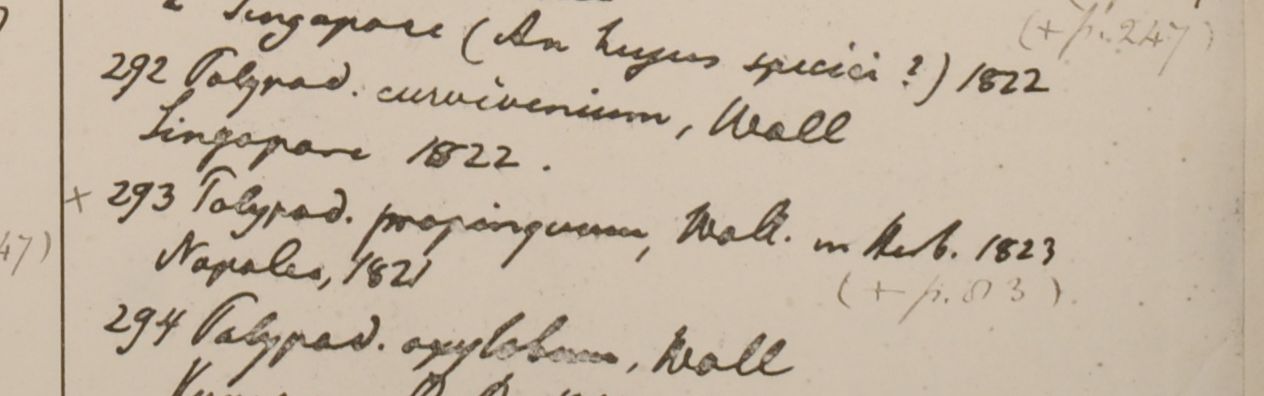 2 Singapore (An hujus speciei ?) 1822
(+ p. 247)
292 Polypod. curvivenium, Wall
Singapore 1822.
+ 293 Polypod. propinquum, Wall. in Herb. 1823
47)
Napalea, 1821
(+ p. 813)
294 Polypod. oxylobum, Wall